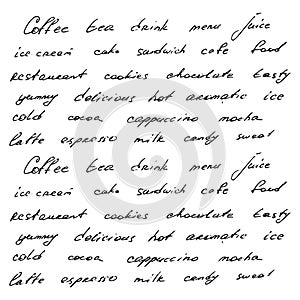 Coffee tea drink menu juice
ice cream cake sandwich cafe food
Restaurant cookies chocolate tasty
yummy delicious hot aromatic ice
cold cocoa cappuccino mocha
latte espresso milk candy sweet
Coffee tea drink menu juice
ice cream cake sandwich cafe food
Restaurant cookies chocolate tasty
yummy delicious hot aromatic ice
cold cocoa cappuccino mocha
latte espresso milk candy sweet